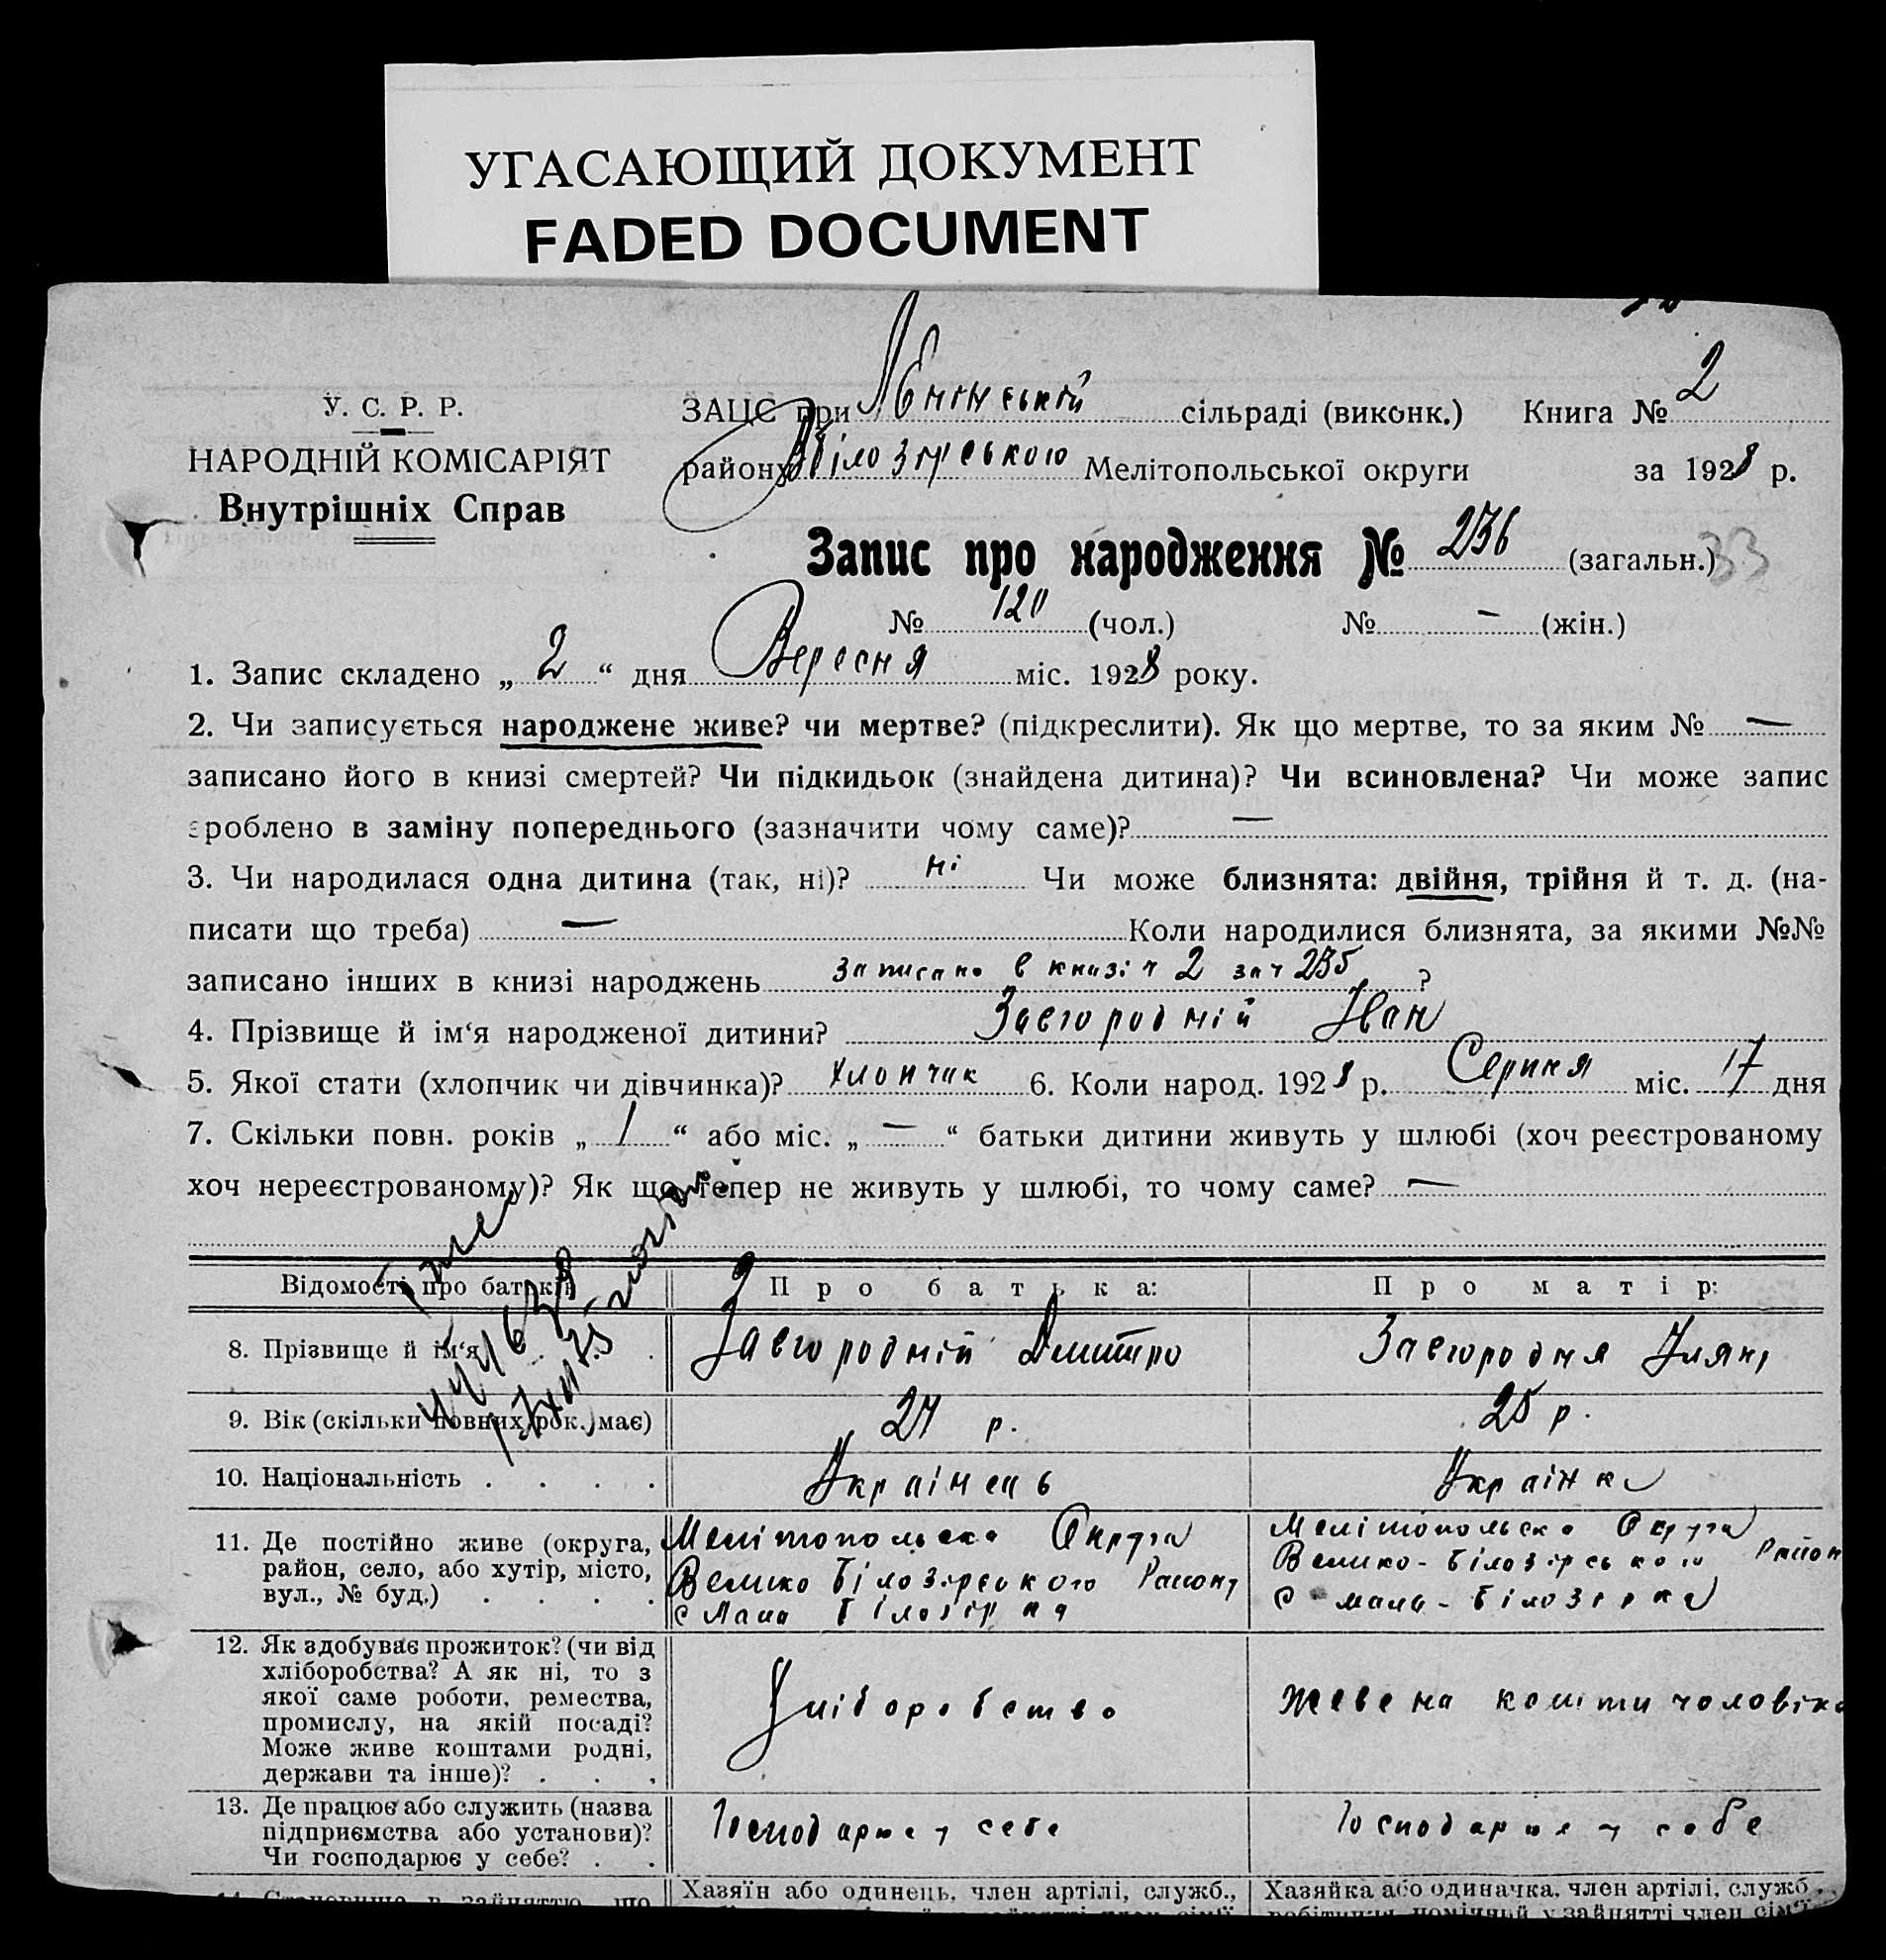 УГАСАЮЩИЙ ДОКУМЕНТ
FADED DOCUMENT
У. С. Р. Р.
НАРОДНІЙ КОМІСАРІЯТ
Внутрішніх Справ
ЗАЦС при сільраді (виконк.) Книга № 2
району Білозірського Мелітопольської округи за 1928 р.
Запис про народження № 236 (загальн.) 33
№ 120 (чол.) № — (жін.)
1. Запис складено „ 2 “ дня Вересня міс. 1928 року.
2. Чи записується народжене живе? чи мертве? (підкреслити). Як що мертве, то за яким № —
записано його в книзі смертей? Чи підкидьок (знайдена дитина)? Чи всиновлена? Чи може запис
зроблено в заміну попереднього (зазначити чому саме)? —
3. Чи народилася одна дитина (так, ні)? ні Чи може близнята: двійня, трійня й т. д. (на-
писати що треба) — Коли народилися близнята, за якими №№
записано інших в книзі народжень записано в книзі ч 2 за ч 235 ?
4. Прізвище й ім‘я народженої дитини? Завгородній Іван
5. Якої стати (хлопчик чи дівчинка)? хлопчик 6. Коли народ. 1928 р. Серпня міс. 17 дня
7. Скільки повн. років „ 1 “ або міс. „ — “ батьки дитини живуть у шлюбі (хоч реєстрованому
хоч нереєстрованому)? Як що тепер не живуть у шлюбі, то чому саме? —
Відомості про батьків Про батька: Про матір:
8. Прізвище й ім‘я . . . Завгородній Дмитро Завгородня Уляна
9. Вік (скільки повних рок. має) 27 р. 25 р.
10. Національність . . . . Українець Українка
11. Де постійно живе (округа, Мелітопольска Округа Мелітопольска Округа
район, село, або хутір, місто, Велико Білозірського Району Велико-Білозірського Район
вул., № буд.) . . . . с Мала Білозірка с мала-Білозірка
12. Як здобуває прожиток? (чи від
хліборобства? А як ні, то з
якої саме роботи, ремества, Хліборобство живе на кошти чоловіка
промислу, на якій посаді?
Може живе коштами родні,
держави та інше)? . . .
13. Де працює або служить (назва
підприємства або установи)? Господарює у себе Господарює у себе
Чи господарює у себе? . .
14. Становище в зайняттю, що Хазяїн або одинець, член артілі, служб., Хазяйка або одиначка, член артілі, служб.,